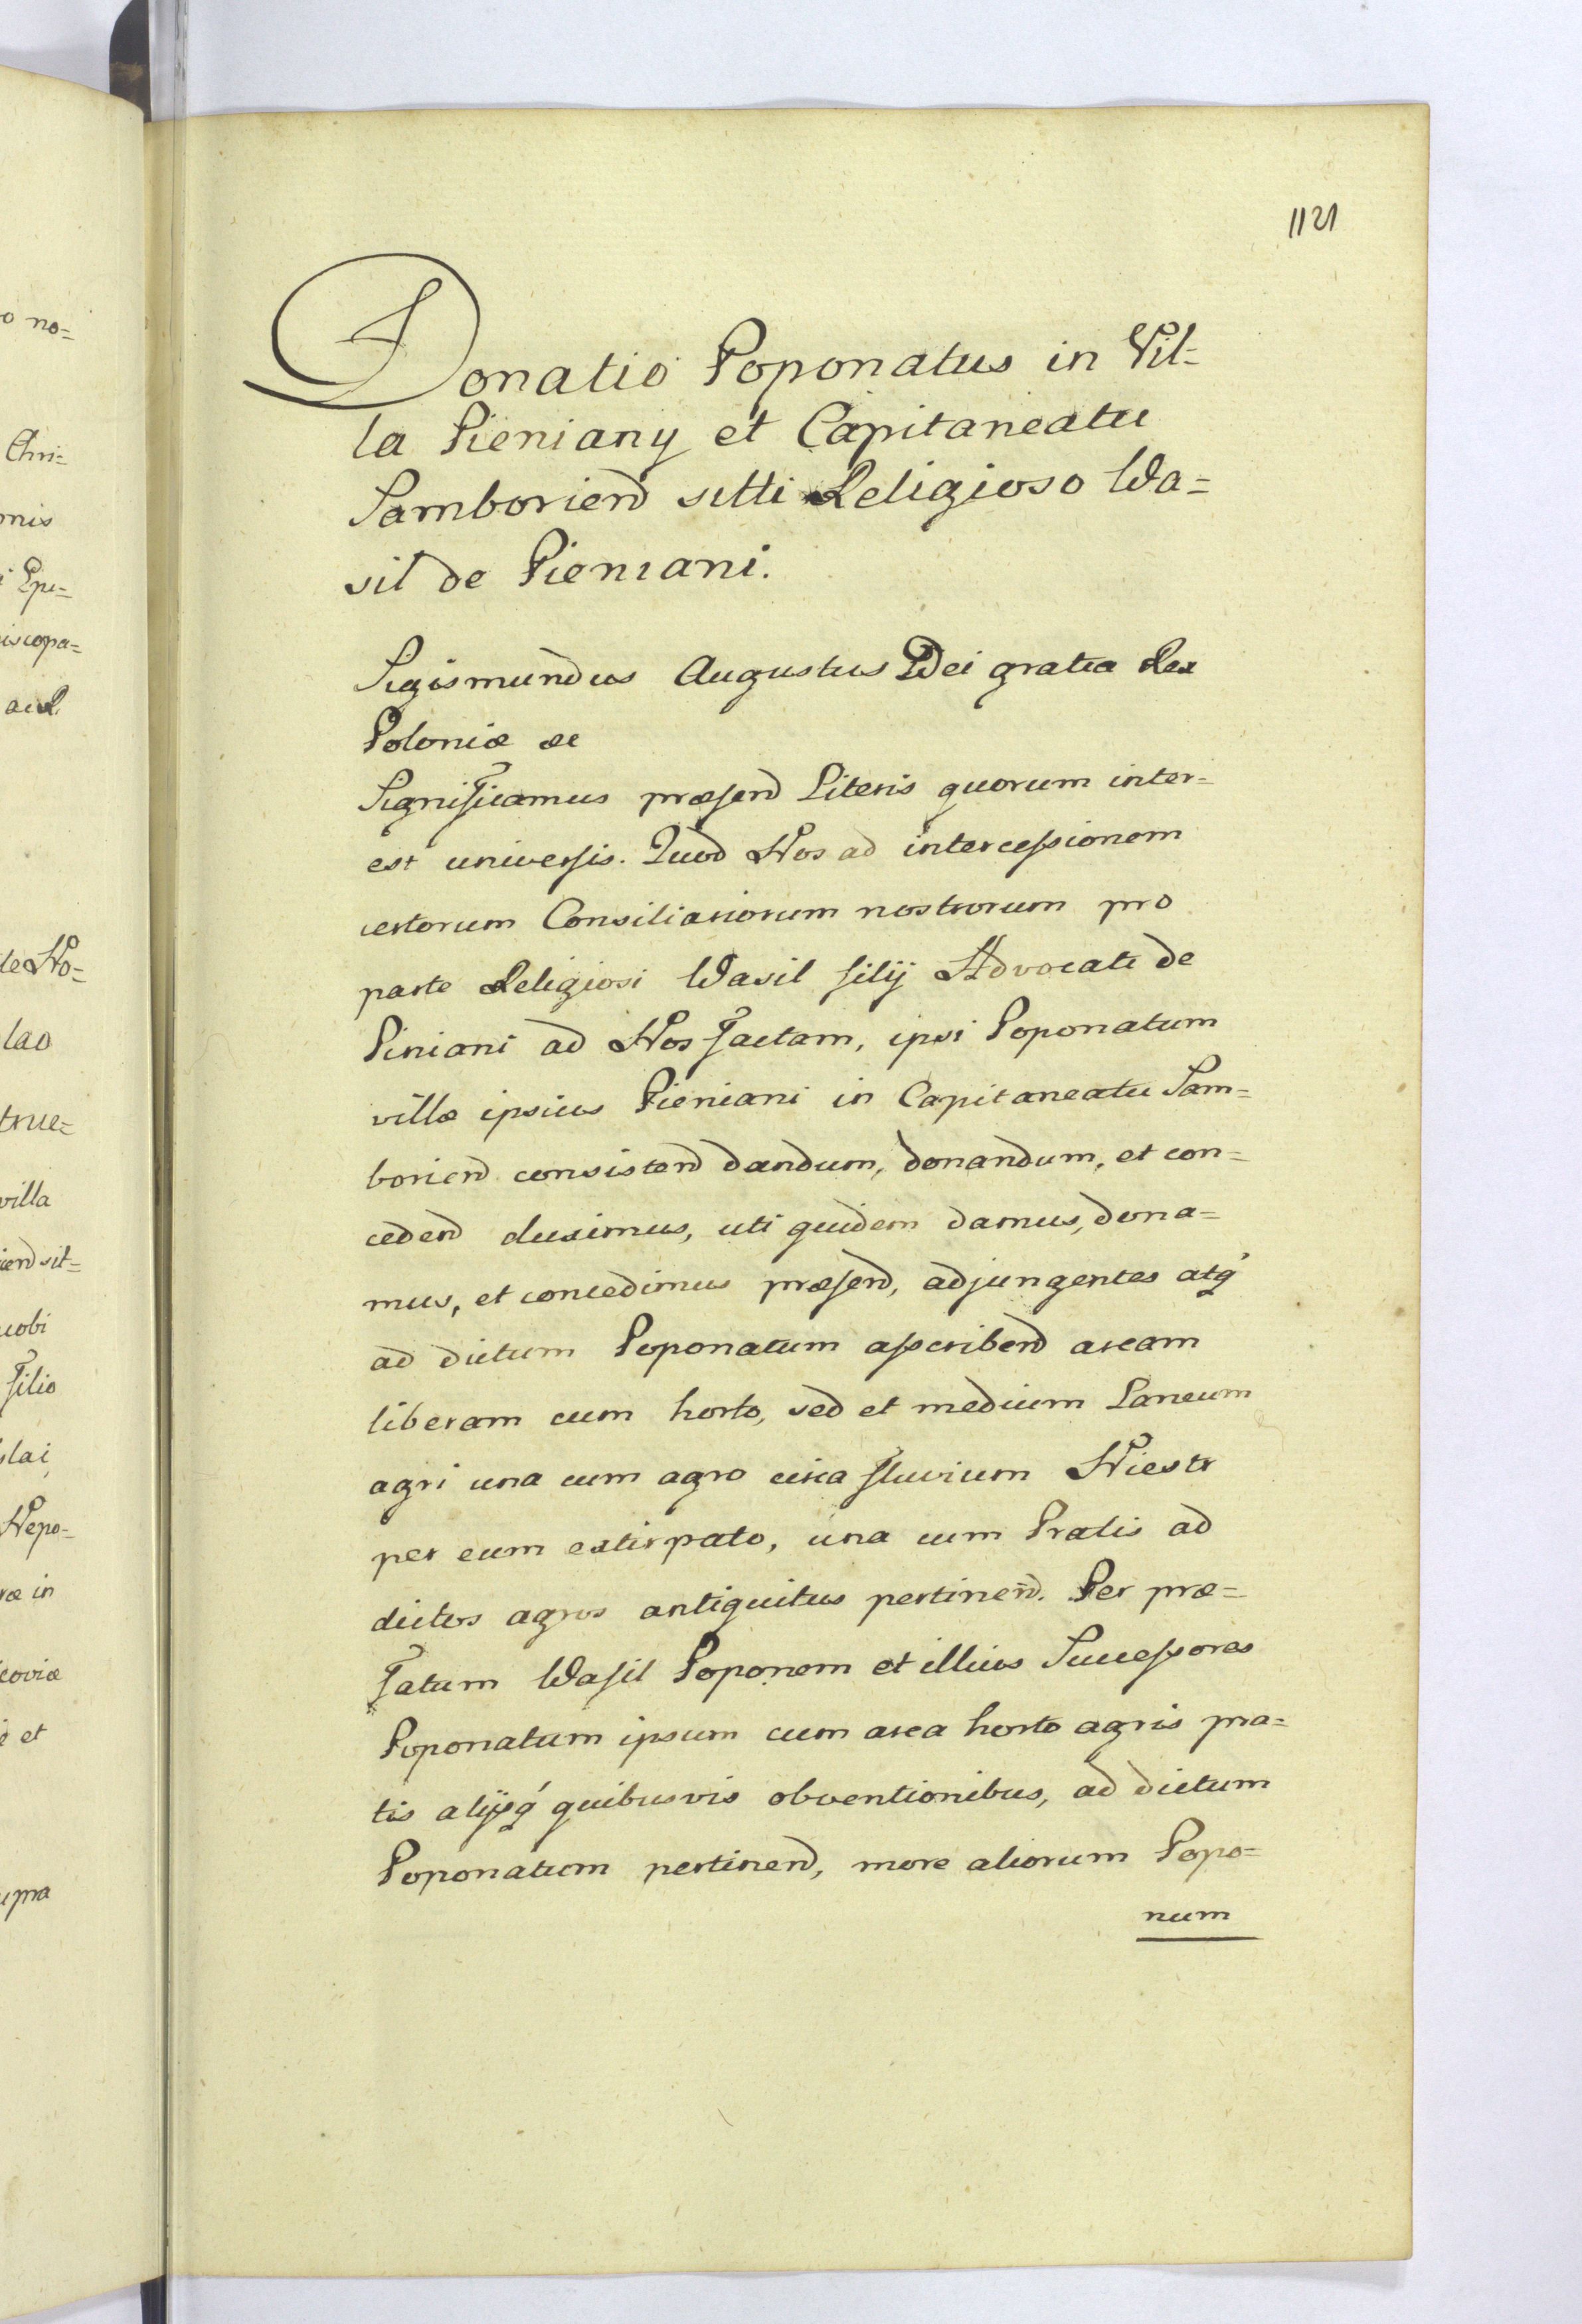 1121
Donatio Poponatus in Vil=
la Pieniany et Capitaneatu
Samboriend sitti Religioso Wa=
sil de Pieniani.
Sigismundus Augustus Dei gratia Rex
Poloniæ &c
Significamus præsend Literis quorum inter=
est universis. Quod Nos ad intercessionem
certorum Consiliariorum nostrorum pro
parte Religiosi Wasil filij Advocati de
Piniani ad Nos factam, ipsi Poponatum
villæ ipsius Pieniani in Capitaneatu Sam=
boriend consistend dandum, donandum, et con=
cedend duximus, uti quidem damus, dona=
mus, et concedimus præsend, adjungentes atq́
ad dictum Poponatum asscribend aream
liberam cum horto, sed et medium Laneum
agri una cum agro circa fluvium Niestr
per eum extirpato, una cum Pratis ad
dictos agros antiquitus pertinend. Per præ=
fatum Wasil Poponem et illius Successores
Poponatum ipsum cum area horto agris pra=
tis alijsq́ quibusvis obventionibus, ad dictum
Poponatum pertinend, more aliorum Popo=
num
o no=
Chri=
onis
i Epi=
iscopa=
ac R
de No=
lao
true=
villa
iend sit=
cobi
filio
slai
Nepo=
ræ in
coviæ
et
upra